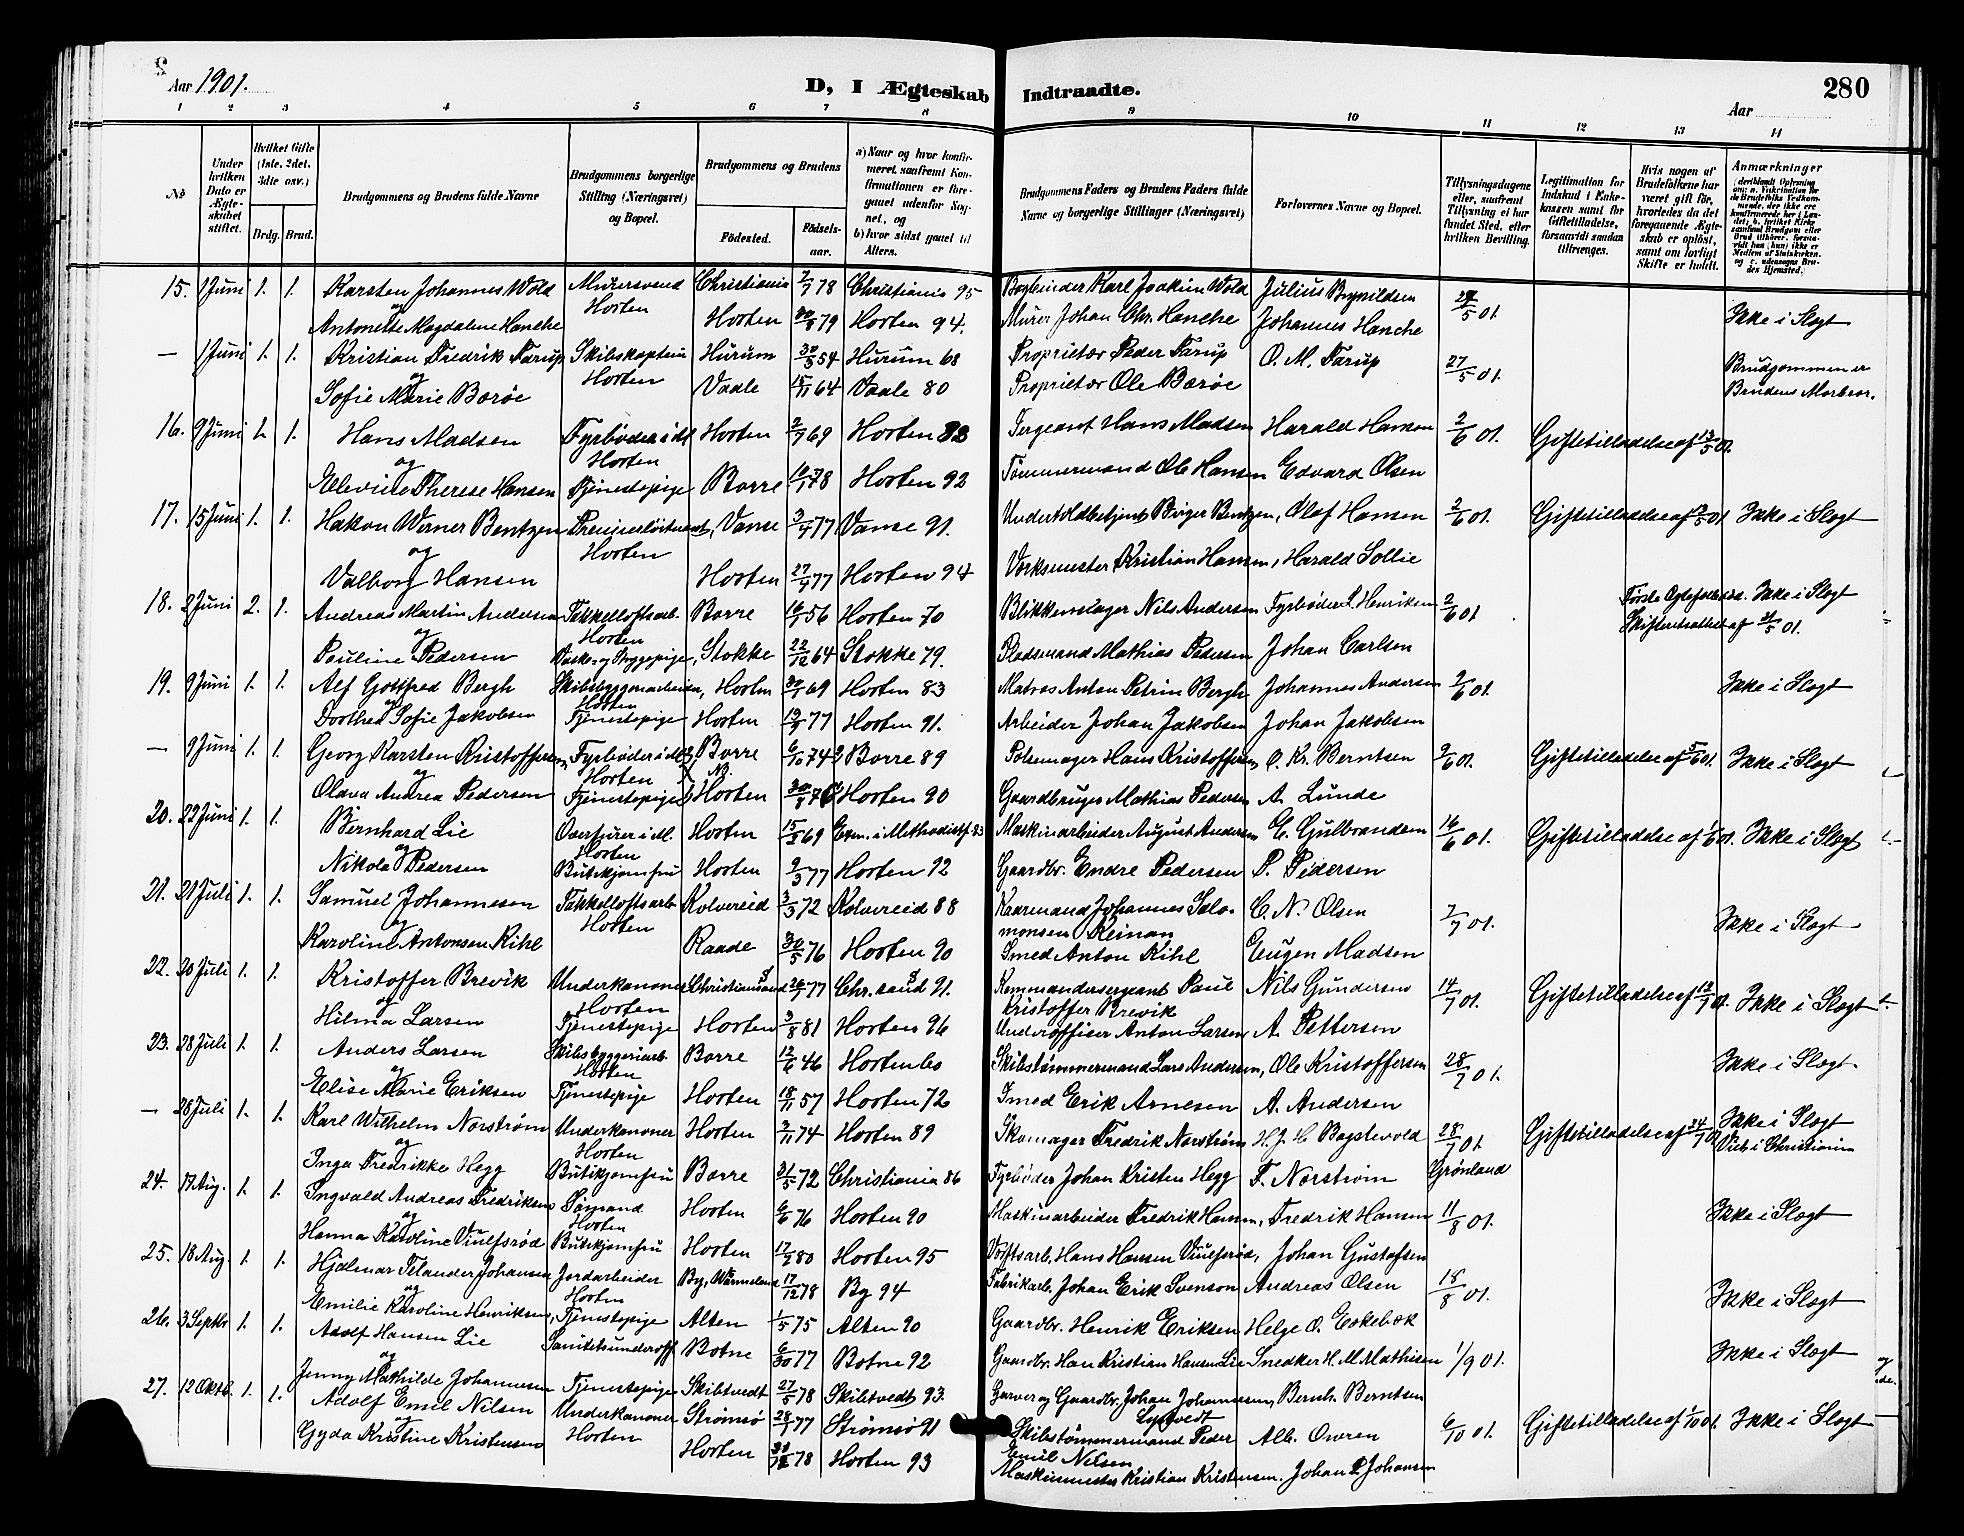 Aar 1901.
D, I Ægteskab Indtraadte.
280
Aar
1 2 3 4 5 6 7 8 9 10 11 12 13 14
No
Under hvilken Dato er Ægteskabet stiftet.
Hvilket Gifte (1ste, 2det, 3die osv.)
Brdg. Brud.
Brudgommens og Brudens fulde Navne
Brudgommens borgerlige Stilling (Næringsvei) og Bopæl.
Brudgommens og Brudens
Födested.
Födselsaar.
a) Naar og hvor konfirmeret, saafremt Konfirmationen er foregaaet udenfor Sognet, og
b) hvor sidst gaaet til Alters.
Brudgommens Faders og Brudens Faders fulde Navne og borgerlige Stillinger (Næringsvei)
Forlovernes Navne og Bopæl.
Tillysningsdagene eller, saafremt Tillysning ei har fundet Sted, efter hvilken Bevilling.
Legitimation for Indskud i Enkekassen samt for Giftetilladelse, forsaavidt saadan tiltrænges.
Hvis nogen af Brudefolkene har været gift før, hvorledes da det foregaaende Ægteskab er oplöst, samt om lovligt Skifte er holdt.
Anmærkninger
15. 1 Juni 1. 1. Karsten Johannes Wold Murersvend Christiania 2/7 78 Christiania 95 Bogbinder Karl Joakim Wold Julius Brynildsen 27/5 01.
og Horten
Antonette Magdalene Hanche Horten 30/8 79 Horten 94. Murer Johan Chr. Hanche Johannes Hanche Ikke i Slægt
— 1 Juni 1. 1. Kristian Fredrik Farup Skibskaptein Hurum 30/3 54 Hurum 68 Proprietær Peder Farup O. M. Farup 27/5 01. Brudgommen er
og Horten
Sofie Marie Børøe Vaale 15/11 64 Vaale 80 Proprietær Ole Børøe Brudens Morbror.
16. 9 Juni 1. 1. Hans Madsen Fyrbøder i d. M. Horten 2/7 69 Horten 83 Sergeant Hans Madsen Harald Hansen 2/6 01. Giftetilladelse af 13/5 01.
og Horten
Elevine Therese Hansen Tjenestepige Borre 10/1 78 Horten 92 Tømmermand Ole Hansen Edvard Olsen
17. 15 Juni 1. 1. Hakon Werner Bentzen Premierløitnant, Vanse 3/4 77 Vanse 91. Undertoldbetjent Birger Bentzen, Olaf Hansen 2/6 01. Giftetilladelse af 9/5 01 Ikke i Slægt
og Horten
Valborg Hansen Horten 27/4 77 Horten 94 Verksmester Kristian Hansen, Harald Sollie
18. 2 Juni 2. 1. Andreas Martin Andersen Takkelloftsarb. Borre 16/1 56 Horten 70 Blikkenslager Nils Andersen Fyrbøder L. Henriksen 2/6 01 Første Ikke i Slægt
og Horten Skifteattest af 31/5 01.
Pauline Pedersen Vaske- og Strygepige, Stokke 22/12 64 Stokke 79. Pladsmand Mathias Pedersen Johan Carlsen
19. 9 Juni 1. 1. Alf Gottfred Bergh Skibsbyggeriarbeider, Horten 30/1 69 Horten 83 Matros Anton Petrin Bergh Johannes Andersen 2/6 01. Ikke i Slægt
og Horten
Dorthea Sofie Jakobsen Tjenestepige Horten 19/9 77 Horten 91. Arbeider Johan Jakobsen Johan Jakobsen
— 9 Juni 1. 1. Georg Karsten Kristoffersen, Fyrbøder i d. M. Borre 6/10 74 Borre 89 Pølsemager Hans Kristoffersen O. Kr. Berntsen 2/6 01. Giftetilladelse af 5/6 01. Ikke i Slægt
og Horten NB.
Olava Andrea Pedersen Tjenestepige Horten 30/8 76 Horten 90 Gaardbruger Mathias Pedersen A. Lunde
20. 22 Juni 1. 1. Bernhard Lie Overfyrer i M. Horten 15/2 69 Exm. i Methodistk. 83 Maskinarbeider August Andersen E. Gulbrandsen 16/6 01. Giftetilladelse af 1/6 01. Ikke i Slægt
og Horten
Nikola Pedersen Butikjomfru Horten 2/3 77 Horten 92 Gaardbr. Endre Pedersen P. Pedersen
21. 21 Juli 1. 1. Samuel Johannesen Takkelloftsarb Kolvereid 3/3 72 Kolvereid 88 Kaarmand Johannes Salo- C. N. Olsen 7/7 01.
og Horten monsen Reinan Ikke i Slægt
Karoline Antonsen Kihl Raade 30/5 76 Horten 90 Smed Anton Kihl Eugen Madsen
22. 20 Juli 1. 1. Kristoffer Brevik Underkanoner Christianssand 26/7 77 Chr.sand 91. Kommandersergeant Paul Nils Gundersen 14/7 01. Giftetilladelse af 12/7 01. Ikke i Slægt
og Horten Kristoffer Brevik
Hilma Larsen Tjenestepige Horten 3/8 81 Horten 96 Underofficer Anton Larsen A. Pettersen
23. 28 Juli 1. 1. Anders Larsen Skibsbyggeriarb. Borre 12/6 46 Horten 60 Skibstømmermand Lars Andersen, Ole Kristoffersen 28/7 01. Ikke i Slægt
og Horten
Elise Marie Eriksen Tjenestepige Horten 18/11 57 Horten 72 Smed Erik Arnesen A. Andersen
— 28 Juli 1. 1. Karl Wilhelm Norstrøm Underkanoner Horten 2/11 74 Horten 89 Skomager Fredrik Norstrøm H. J. C. Bogstevold 28/7 01. Giftetilladelse af 24/7 01 Ikke i Slægt
og Horten Viet i Christiania
Inga Fredrikke Hegg Butikjomfru Borre 31/5 72 Christiania 86 Fyrbøder Johan Kristen Hegg F. Norstrøm Grønland
24. 17 Aug. 1. 1. Ingvald Andreas Fredriksen Sømand Horten 6/6 76 Horten 90 Maskinarbeider Fredrik Hansen, Fredrik Hansen 11/8 01. Ikke i Slægt
og Horten
Hanna Karoline Viulfsrød Butikjomfru Horten 17/9 80 Horten 95 Værftsarb. Hans Hansen Viulfsrød, Johan Gustafsen
25. 18 Aug. 1. 1. Hjalmar Telander Johansen Jordarbeider By, Wermeland 17/12 78 By 94 Fabrikarb. Johan Erik Svenson Andreas Olsen 18/8 01. Ikke i Slægt
og Horten
Emilie Karoline Henriksen, Tjenestepige Alten 1/5 75 Alten 90 Gaardbr. Henrik Eriksen Helge O. Eskebæk
26. 3 Septbr 1. 1. Adolf Hansen Lie Sanitetsunderoff. Botne 6/30 77 Botne 92 Gaardbr. Hans Kristian Hansen Lie Snedker H. M. Mathisen 1/9 01. Ikke i Slægt
og
Jenny Mathilde Johannesen Tjenestepige Skibtvedt 27/5 78 Skibtvedt 93. Garver og Gaardbr. Johan Johannesen, Bernh. Berntsen
27. 12 Oktb. 1. 1. Adolf Emil Nilsen Underkanoner Strømsø 28/7 77 Strømsø 91 Skibstømmermand Peder Alb. Owren 6/10 01. Giftetilladelse af 1/10 01. Ikke i Slægt
og Horten Emil Nilsen
Gyda Kristine Kristensen Horten 30/12 78 Horten 93 Maskinmester Kristian Kristensen. Johan P. Johansen